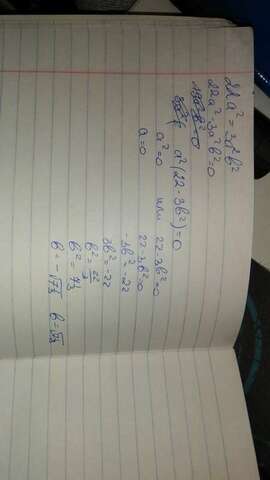 22a² = 3a²b²
22a² - 3a²b² = 0
a²(22 - 3b²) = 0
a² = 0 или 22 - 3b² = 0
a = 0 22 - 3b² = 0
-3b² = -22
3b² = -22
b² = 22/3
b² = 7⅓
b = -√7⅓ b = √7⅓